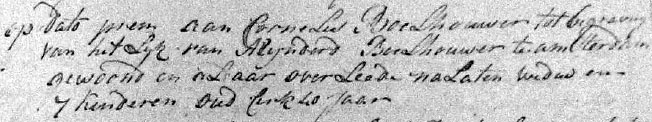 op dato prem aan Cornelis Boelhouwer tot begraving
van het Lijk van Meijnderd Boelhouwer te amsterdam
gewoond en alaar overLeede naLaten weduw en
7 Kinderen oud Cirk 40 Jaar